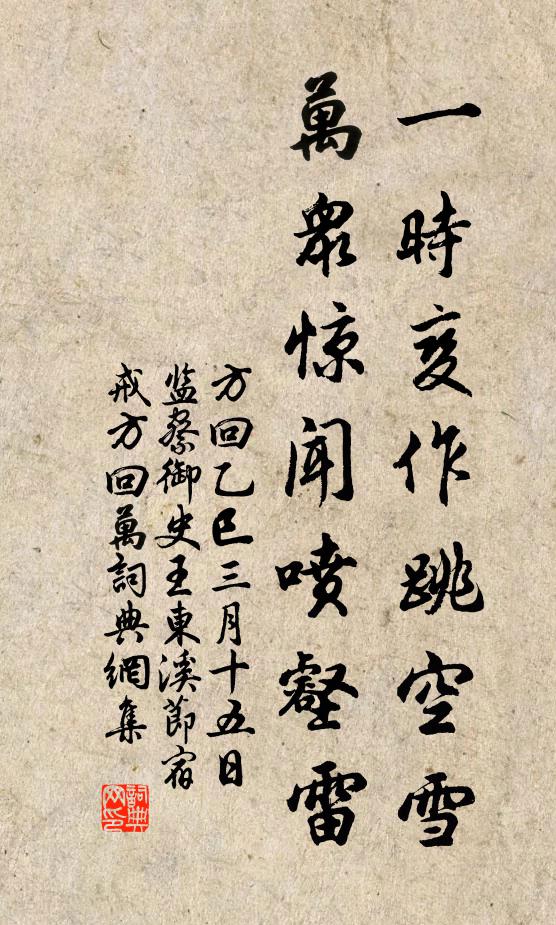 一時变作跳空雪
萬眾惊闻喷壑雷
方回乙巳三月十五日
监察御史王東溪節宿
戒方回萬詞典網集
詞典网印